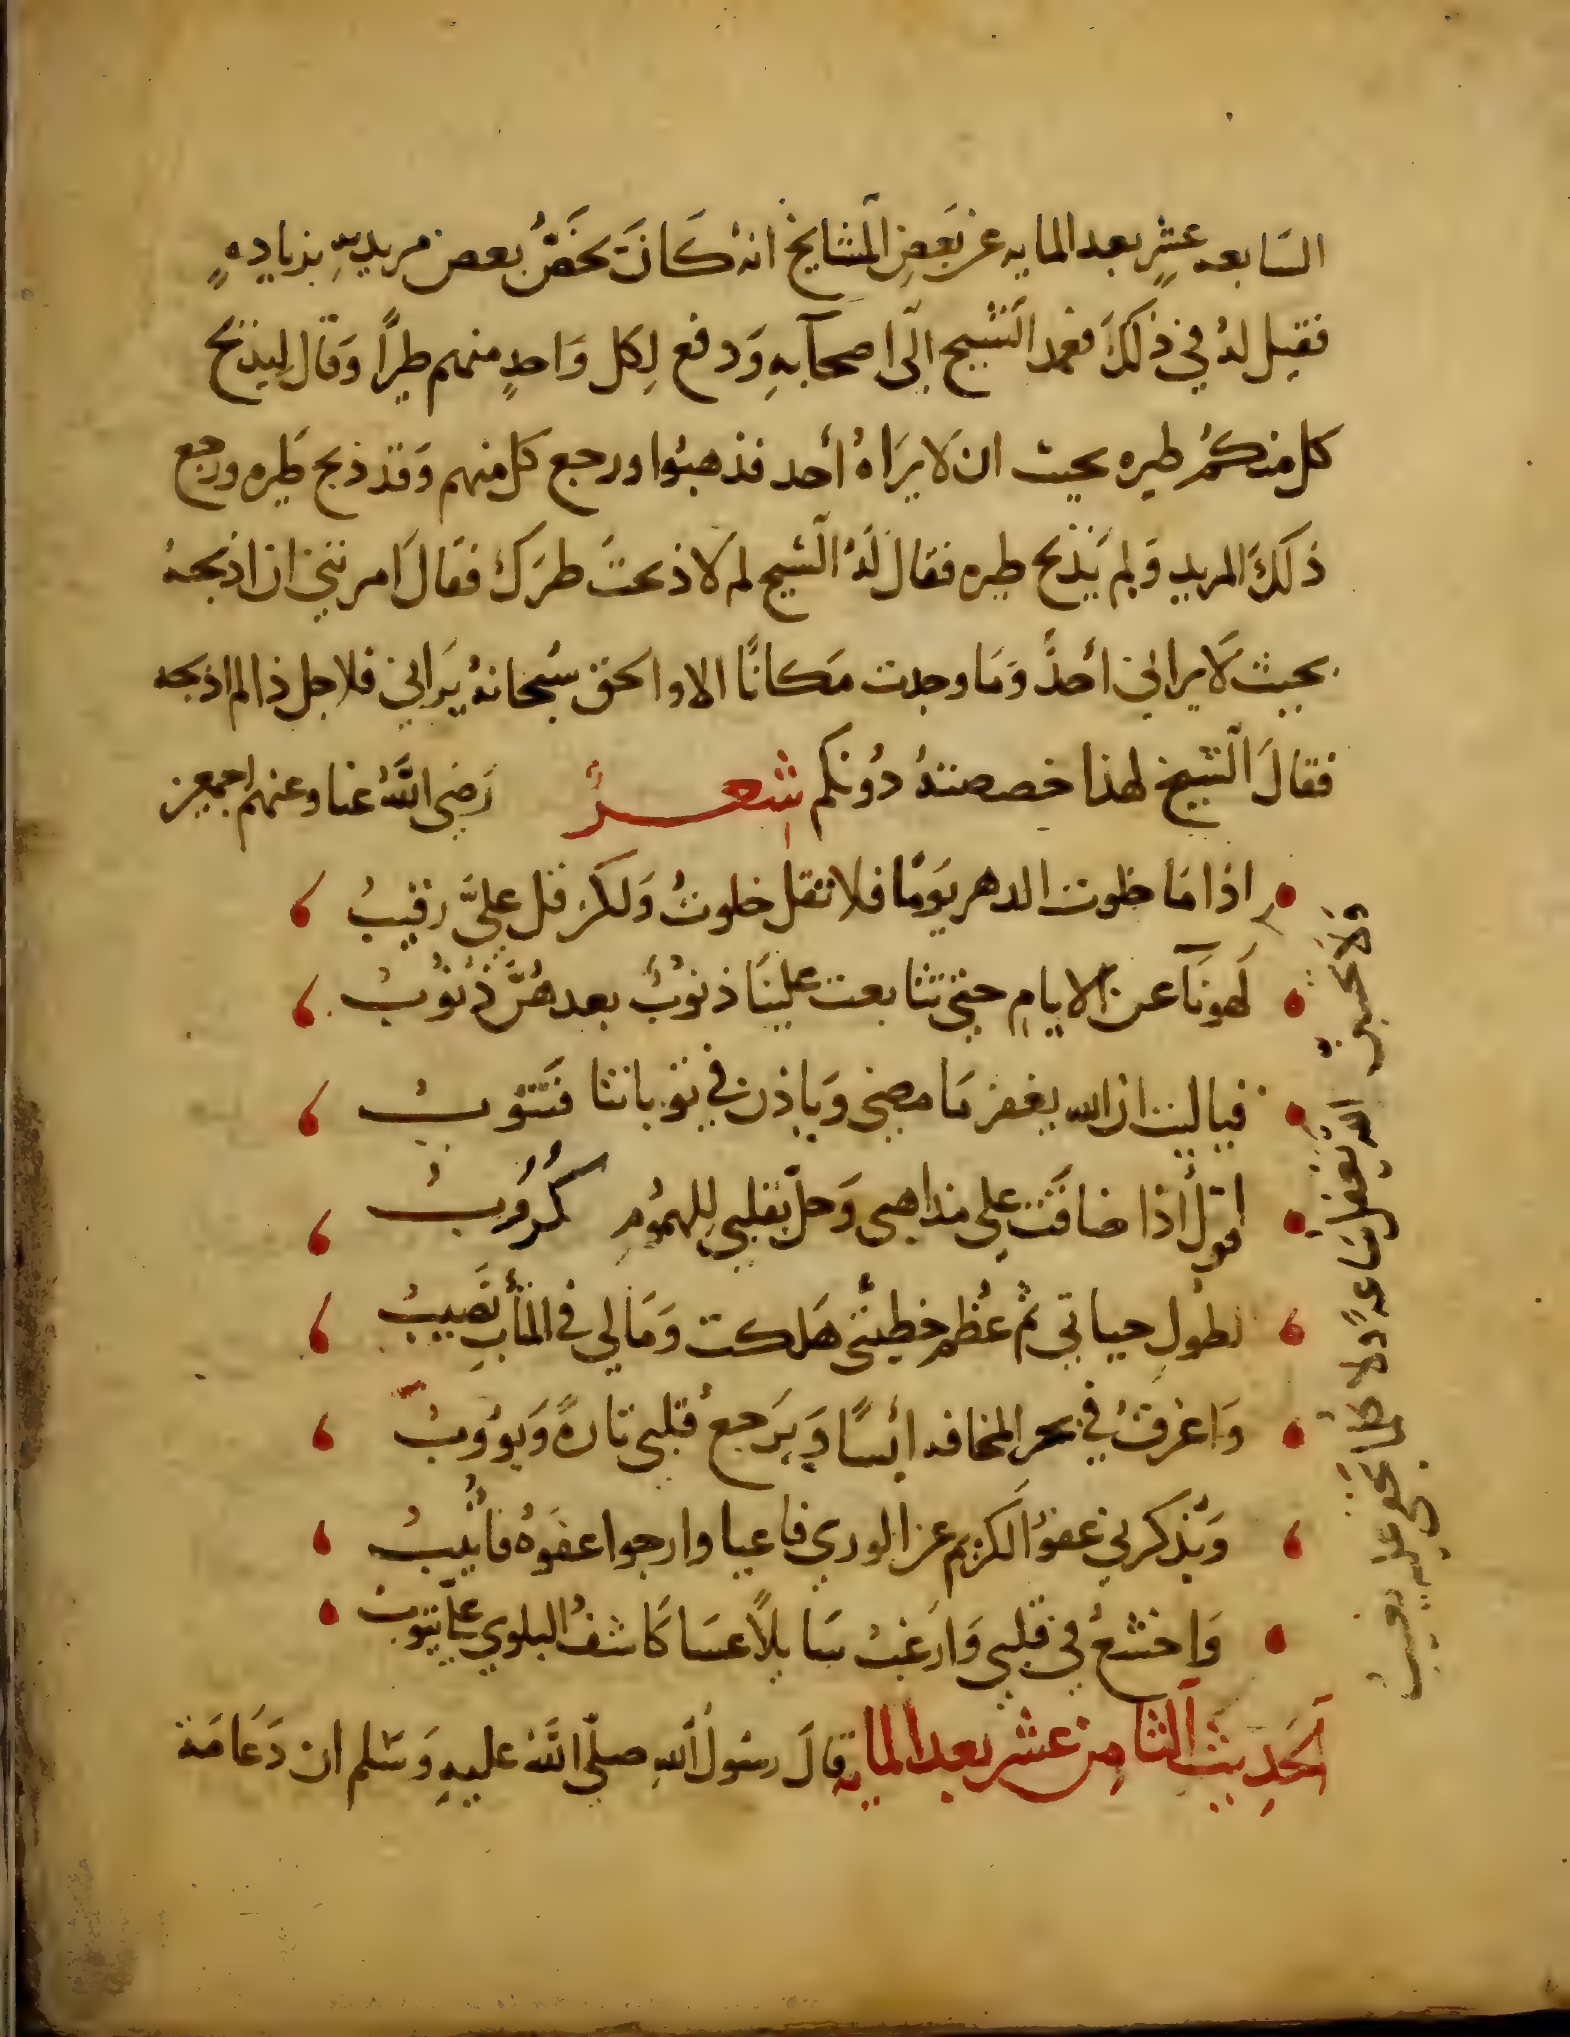 السابعه عشر بعد المايه عن بعض المشايخ انه كان يخص بعض مريديه بزياده
فقيل له في ذلك فعمد الشيخ الى اصحابه ودفع لكل واحد منهم طيرا وقال ليذبح
كل منكم طيره بحيث ان لا يراه أحد فذهبوا ورجع كل منهم وقد ذبح طيره ورجع
ذلك المريد ولم يذبح طيره فقال له الشيخ لم لا ذبحت طيرك فقال امرتني ان اذبحه
بحيث لا يراني أحدً وما وجدت مكانًا الا والحق سبحانه يراني فلاجل ذا لم اذبحه
فقال الشيخ لهذا خصصته دونكم شعر رضي الله عنا وعنهم اجمعين
اذا ما خلوت الدهر يومًا فلا تقل خلوتُ ولكن قل عليّ رقيبُ
لهونا عن الايام حتى تتابعت علينا ذنوبٌ بعدهنّ ذنوبُ
فيا ليت ان الله يغفر ما مضى ويأذن في توباتنا فنتوبُ
اقول اذا ضاقت علي مذاهبي وحلّ بقلبي للهمومِ كروبُ
لطول حياتي ثم عُظم خطيئتي هلكت وما لي في المتأب نصيبُ
واغرقُ في بحر المخافه ايسًا ويرجع قلبي تارةً ويؤوبُ
ويذكرني عفو الكريم عن الوري فاحيا وارجوا عفوه فأنيبُ
واخشع في قلبي وارغب سايلًا عسا كاشف البلوي عليّ يتوبُ
الحديث الثامن عشر بعد المايه قال رسول الله صلى الله عليه وسلم ان دعامة
ولا تحسبن الله يغفل ساعةً ولا ان ما تخفى عليه يغيبُ